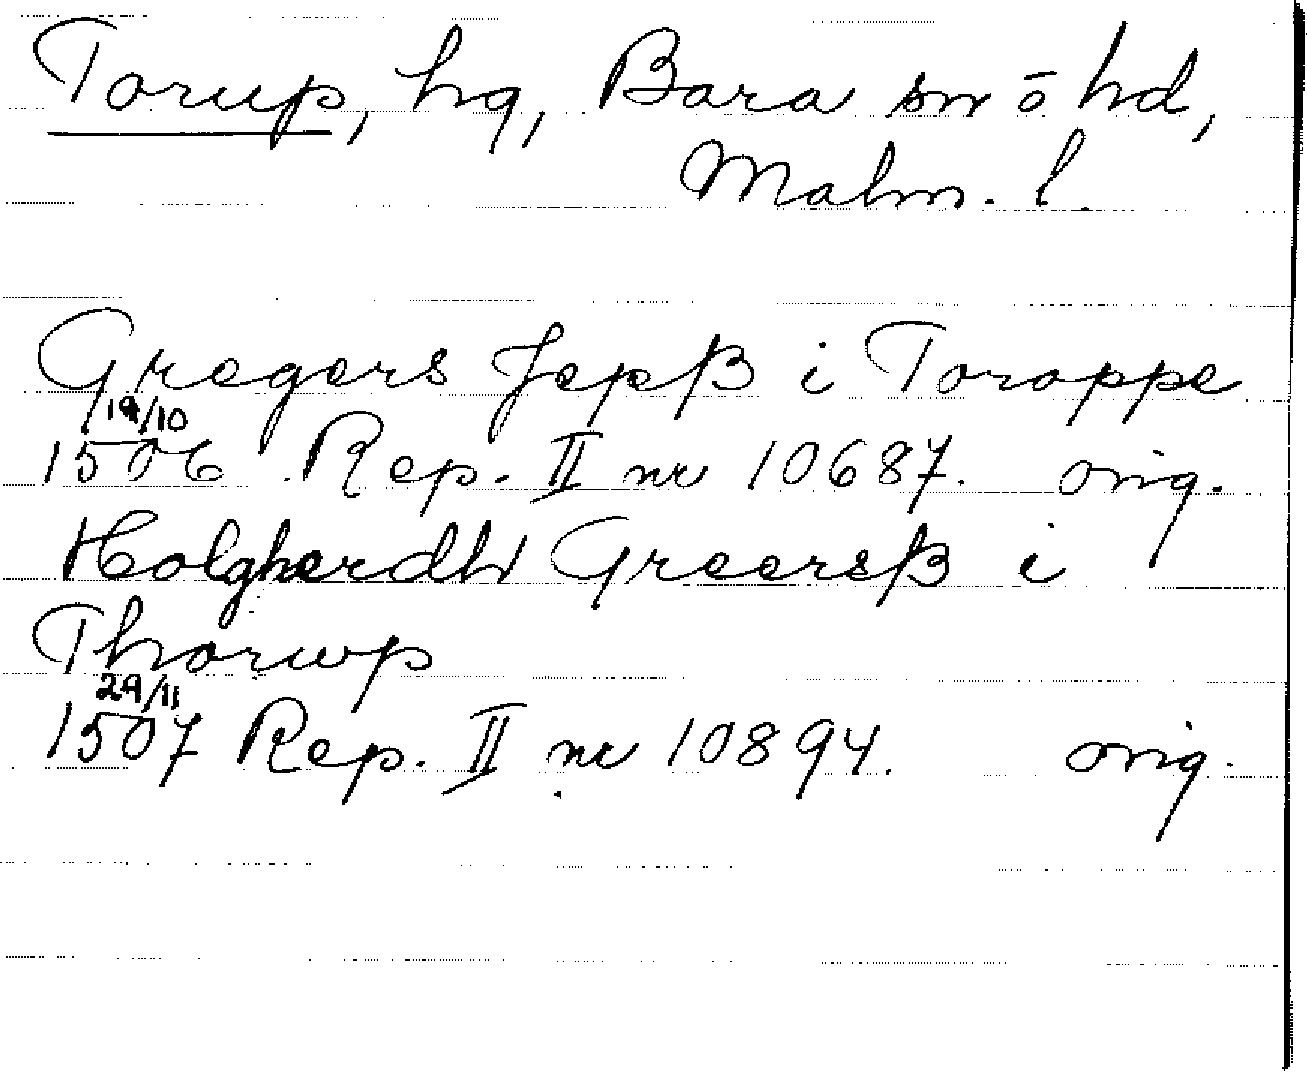 Torup, hg, Bara sn ō hd,
Malm. l.
Gregers Jepß i Toroppe
19/10
1506 Rep. II nr 10687. orig.
Holgherdh Greersß i
Thorwp
29/11
1507 Rep. II nr 10894. orig.